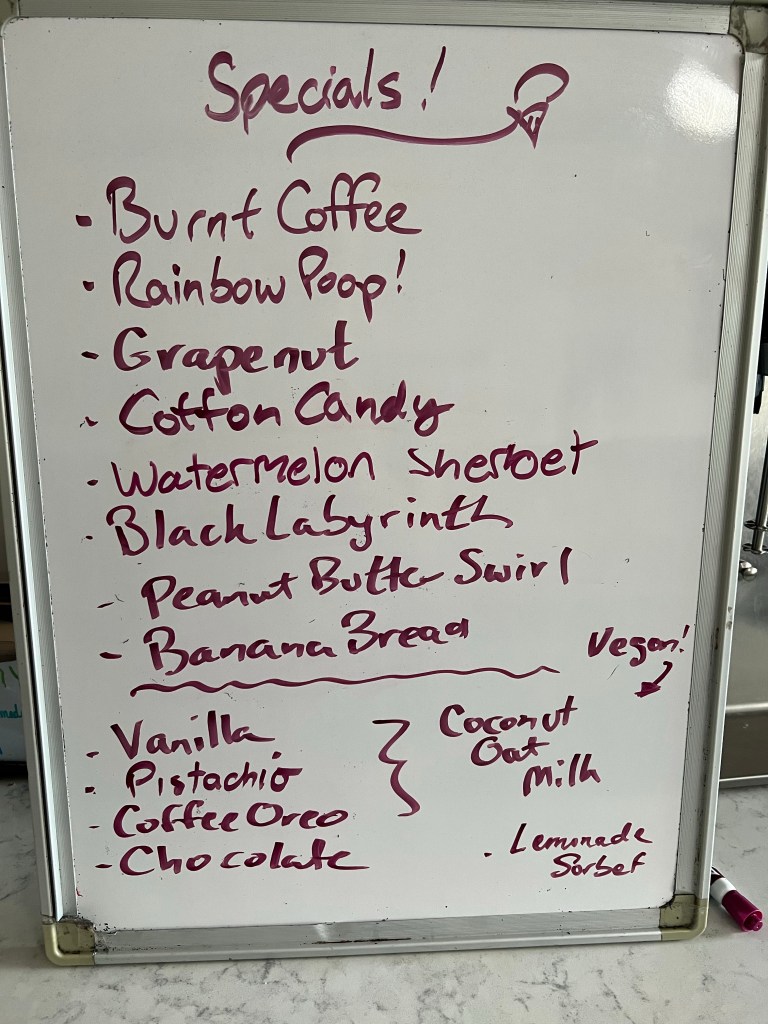 Specials!
• Burnt Coffee
• Rainbow Poop!
- Grapenut
- Cotton Candy
• Watermelon Sherbet
• Black Labyrinth
- Peanut Butter Swirl
- Banana Bread
Vegan!
- Vanilla
• Pistachio
- Coffee Oreo
- Chocolate
Coconut
Oat
Milk
• Lemonade
Sorbet